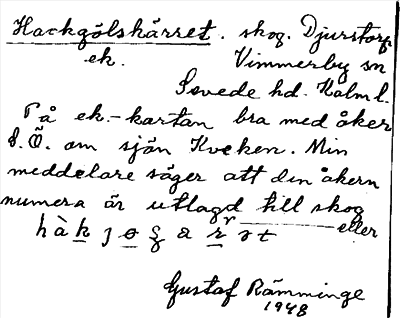 Hackgölskärret. skog. Djurstorp
ek. Vimmerby sn
Sevede hd. Kalm l.
På ek.-kartan bra med åker
S.Ö. om sjön Kveken. Min
meddelare säger att den åkern
numera är utlagd till skog
eller
Gustaf Rämminge
1948